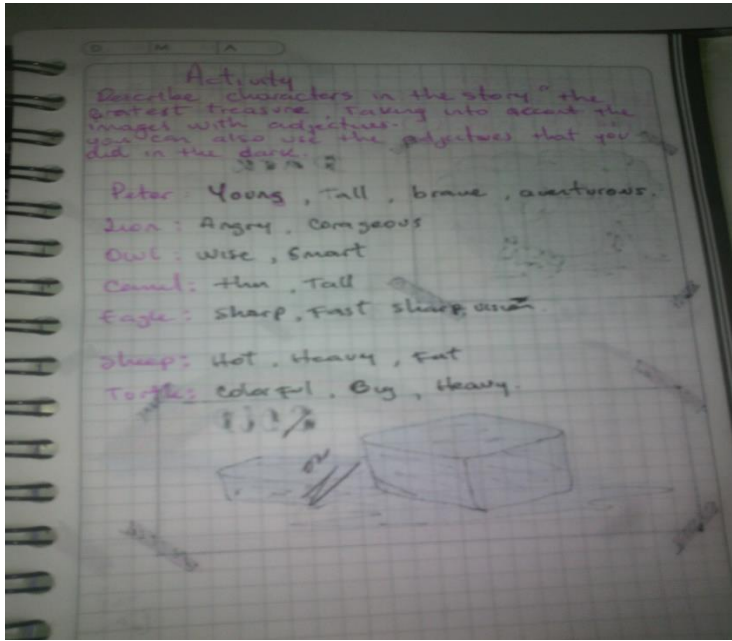 D M A
Activity
Describe characters in the story "the
gratest treasure, Taking into accout the
images with adjectives.
you can also use the adjectives that you
did in the dark.
Peter: Young, Tall, brave, aventurous.
Lion: Angry, Corageous
Owl: wise, Smart
Camel: thin, Tall
Eagle: Sharp, Fast sharp, vision.
Sheep: Hot, Heavy, Fat
Turtle: Colorful, Big, Heavy.